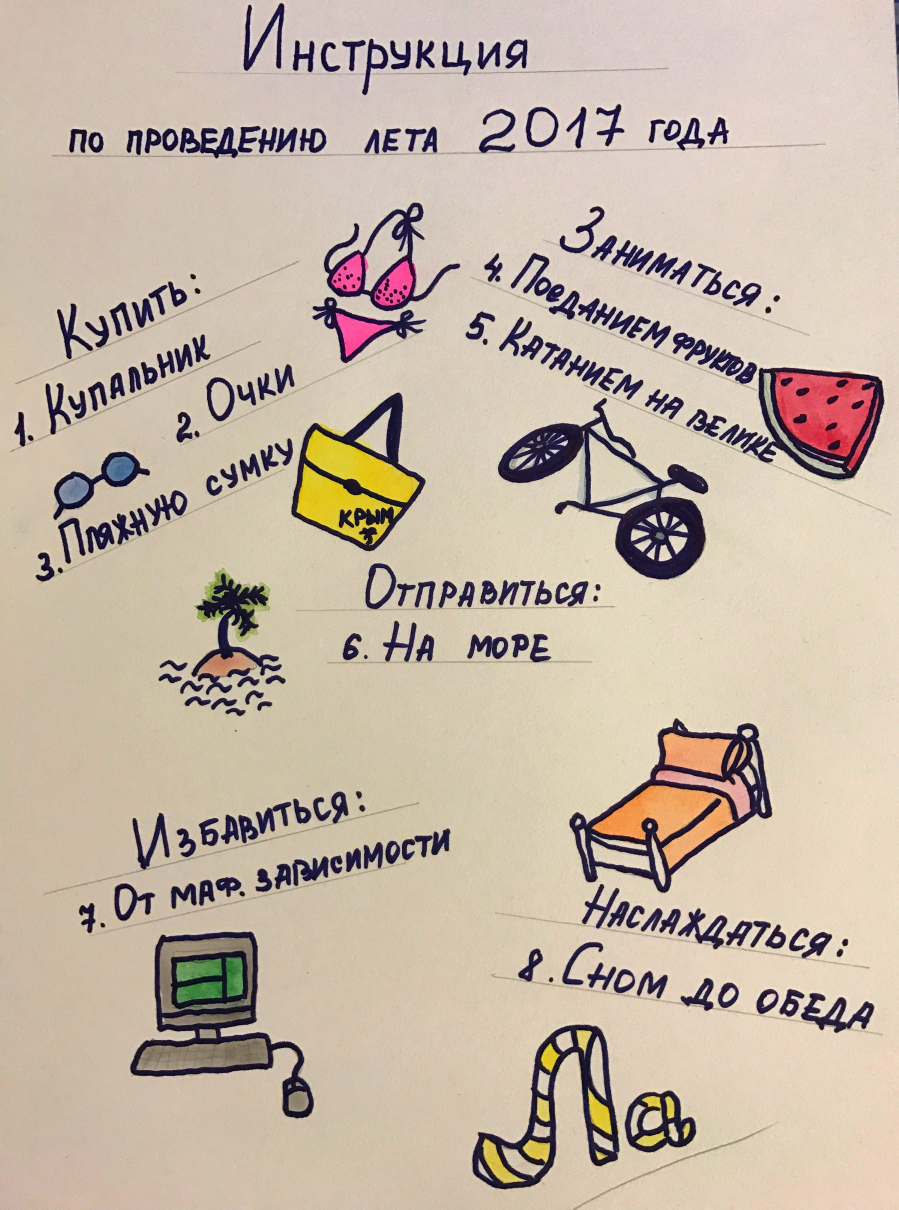 Инструкция
по проведению лета 2017 года
Купить:
1. Купальник
2. Очки
3. Пляжную сумку
КРЫМ
Заниматься:
4. Поеданием фруктов
5. Катанием на велике
Отправиться:
6. На море
Избавиться:
7. От маф. зависимости
Наслаждаться:
8. Сном до обеда
Ла